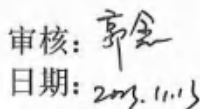 审核：郭念
日期：2023.11.13